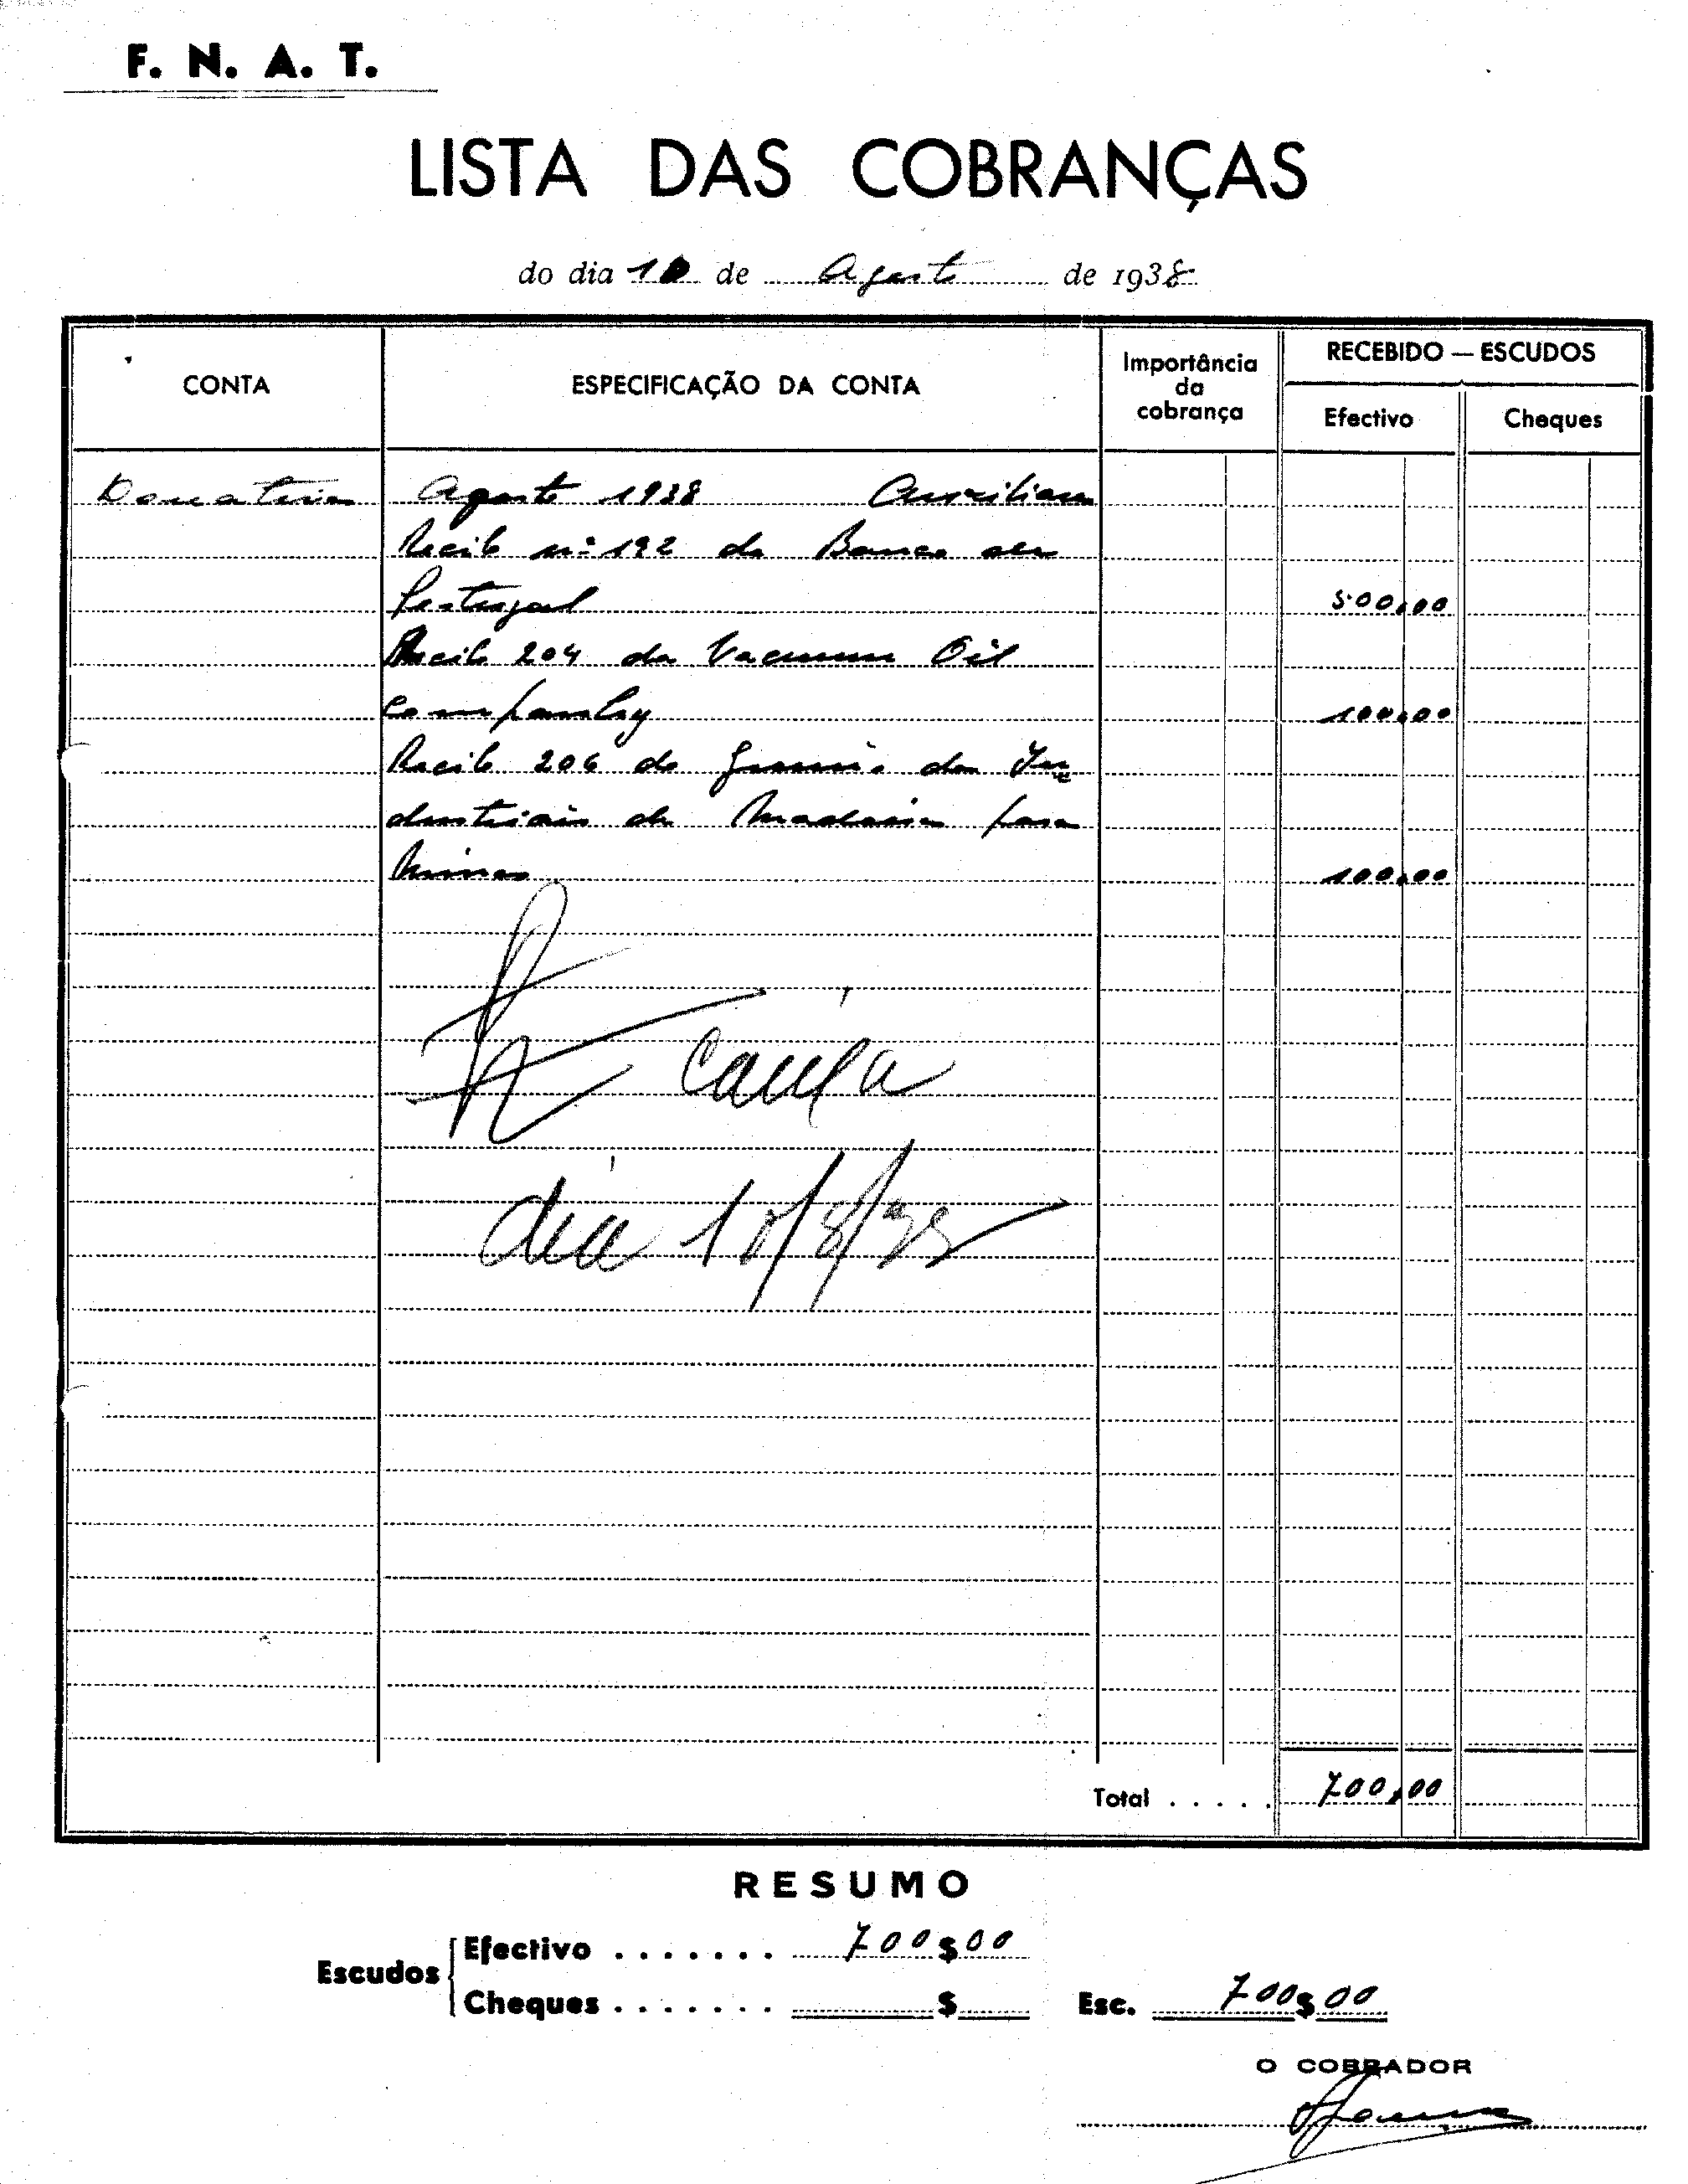 F. N. A. T.
LISTA DAS COBRANÇAS
do dia 10 de Agosto de 1938
CONTA
ESPECIFICAÇÃO DA CONTA
Importância
da
cobrança
RECEBIDO — ESCUDOS
Efectivo
Cheques
Donativos Agosto 1938 Auxiliares
Recibo nº 192 do Banco de
Portugal 500,00
Recibo 204 da Vacuum Oil
Company 100,00
Recibo 206 do Gremio dos In
dustriais de Madeiras para
Minas 100,00
Caixa
dia 10/8/38
Total . . . . . 700,00
RESUMO
Escudos
Efectivo . . . . . . . 700$00
Cheques . . . . . . . $
Esc. 700$00
O COBRADOR